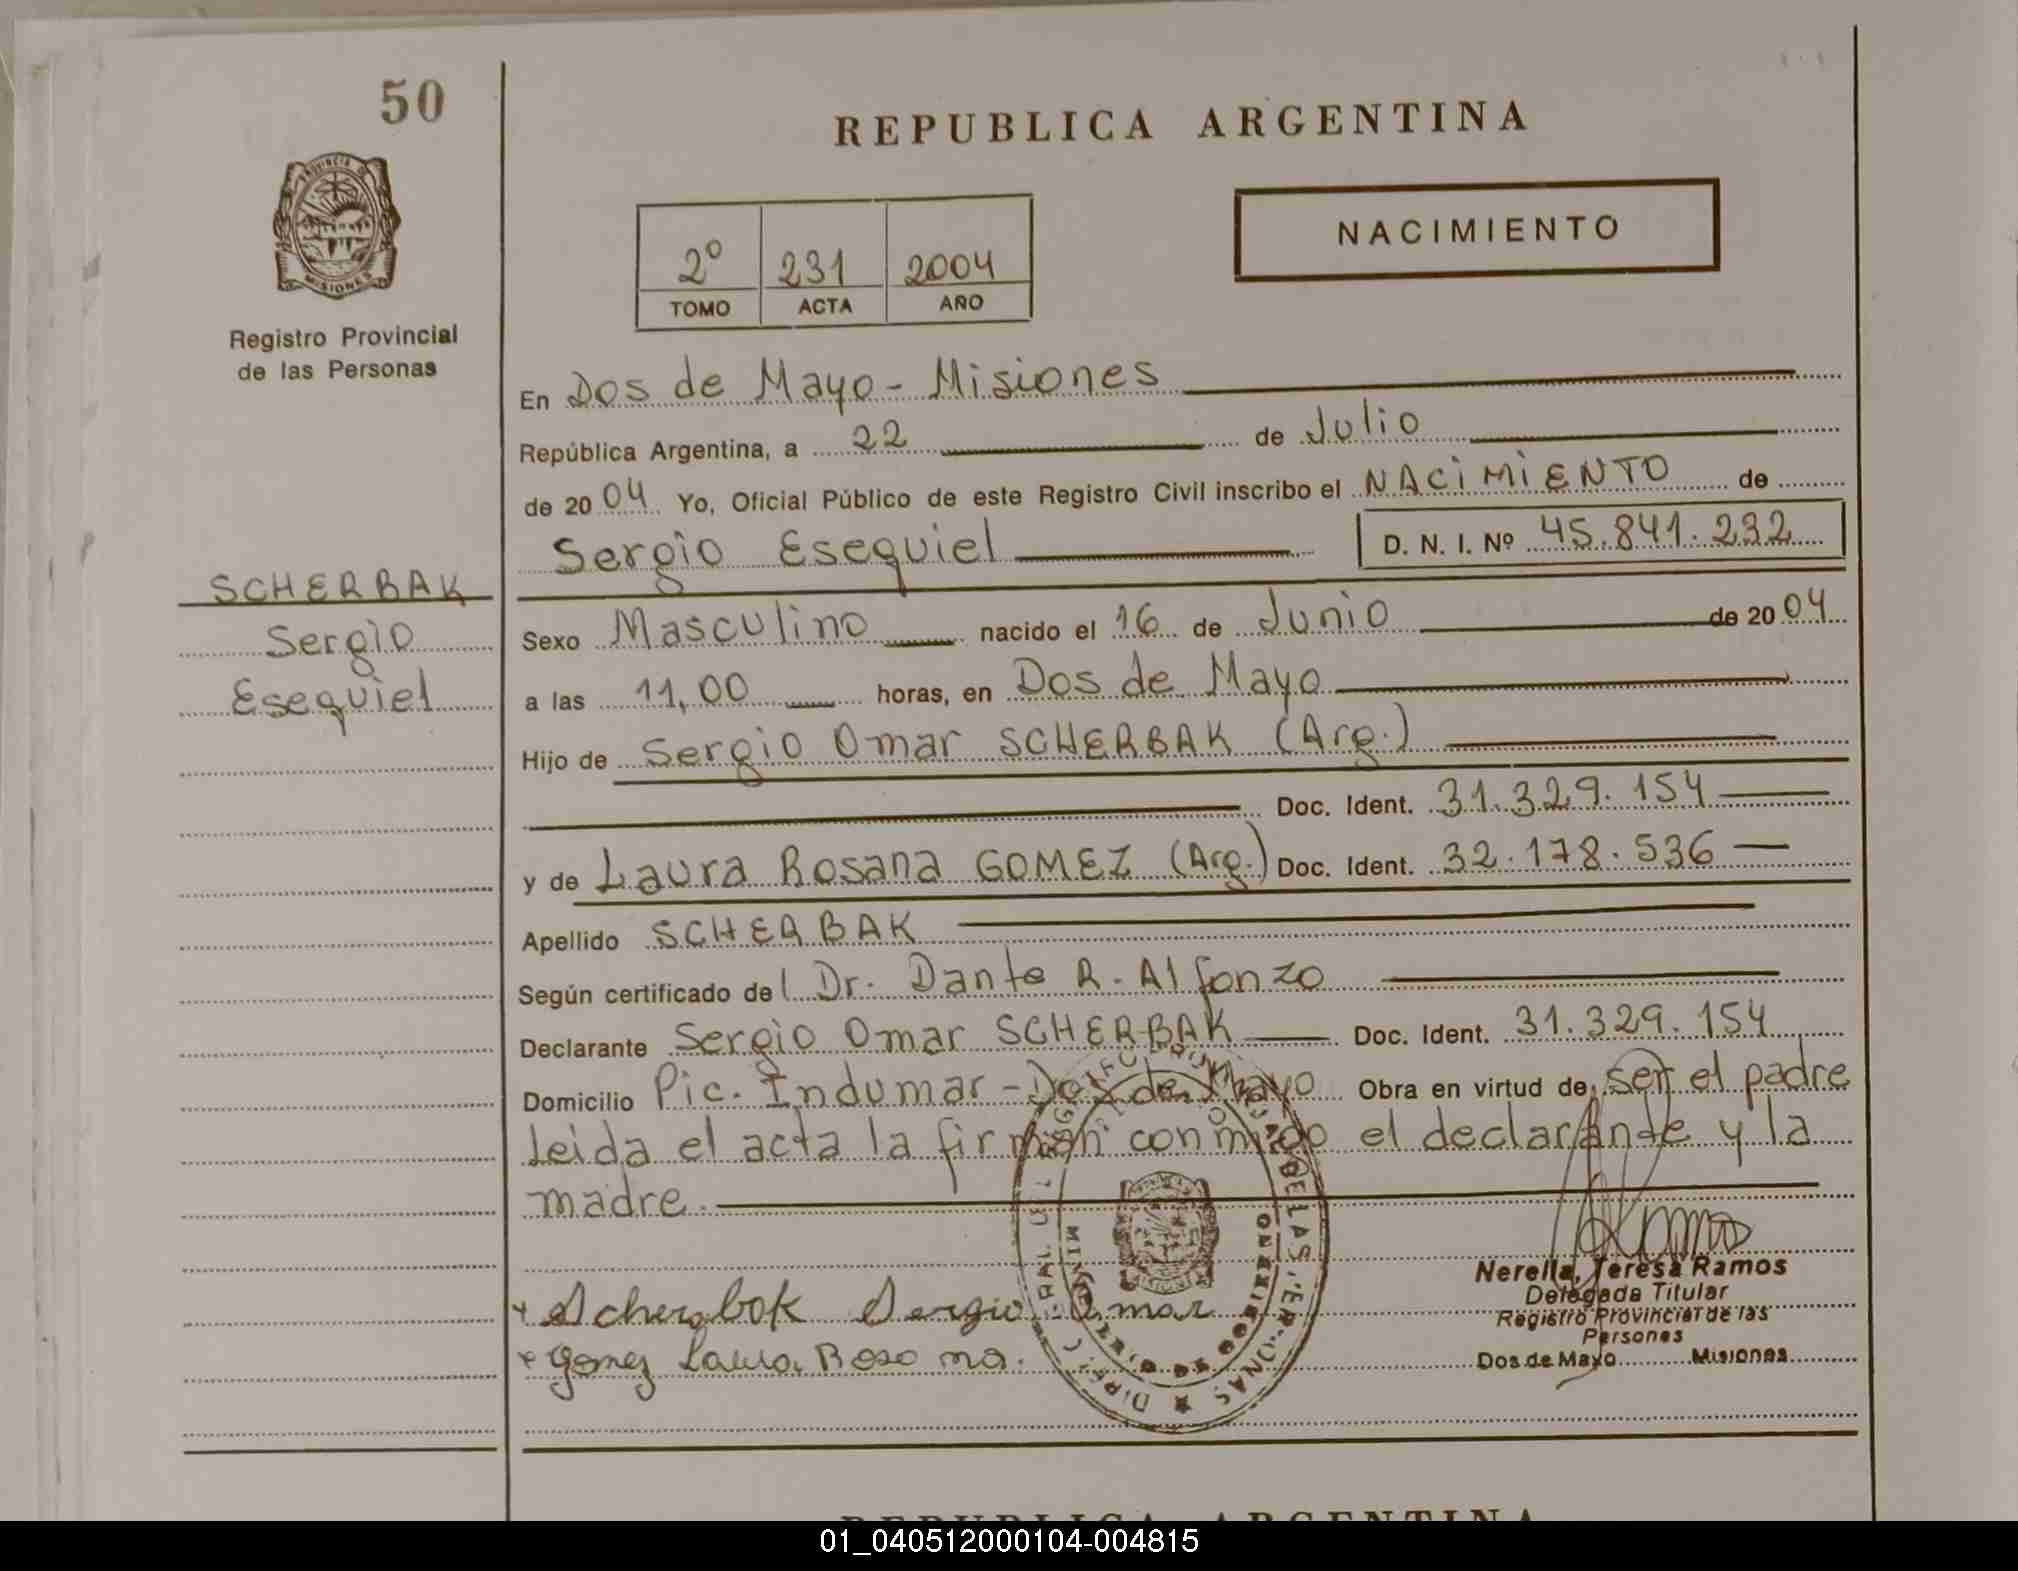 50
REPUBLICA ARGENTINA
PROVINCIA DE
MISIONES
NACIMIENTO
2º 231 2004
TOMO ACTA AÑO
Registro Provincial
de las Personas
En Dos de Mayo - Misiones
República Argentina, a 22 de Julio
de 2004 Yo, Oficial Público de este Registro Civil inscribo el NACIMIENTO de
Sergio Esequiel D. N. I. Nº 45.841.232
SCHERBAK
Sergio
Esequiel
Sexo Masculino nacido el 16 de Junio de 2004
a las 11,00 horas, en Dos de Mayo
Hijo de Sergio Omar SCHERBAK (Arg.)
Doc. Ident. 31.329.154
y de Laura Rosana GOMEZ (Arg.) Doc. Ident. 32.178.536
Apellido SCHERBAK
Según certificado del Dr. Dante R. Alfonzo
Declarante Sergio Omar SCHERBAK Doc. Ident. 31.329.154
Domicilio Pic. Indumar - Dos de Mayo Obra en virtud de ser el padre
Leida el acta la firman conmigo el declarante y la
madre.
+ Scherbak Sergio Omar
+ Gomez Laura Rosana.
Nerella, Teresa Ramos
Delegada Titular
Registro Provincial de las
Persones
Dos de Mayo Misiones
REPUBLICA ARGENTINA
01_040512000104-004815